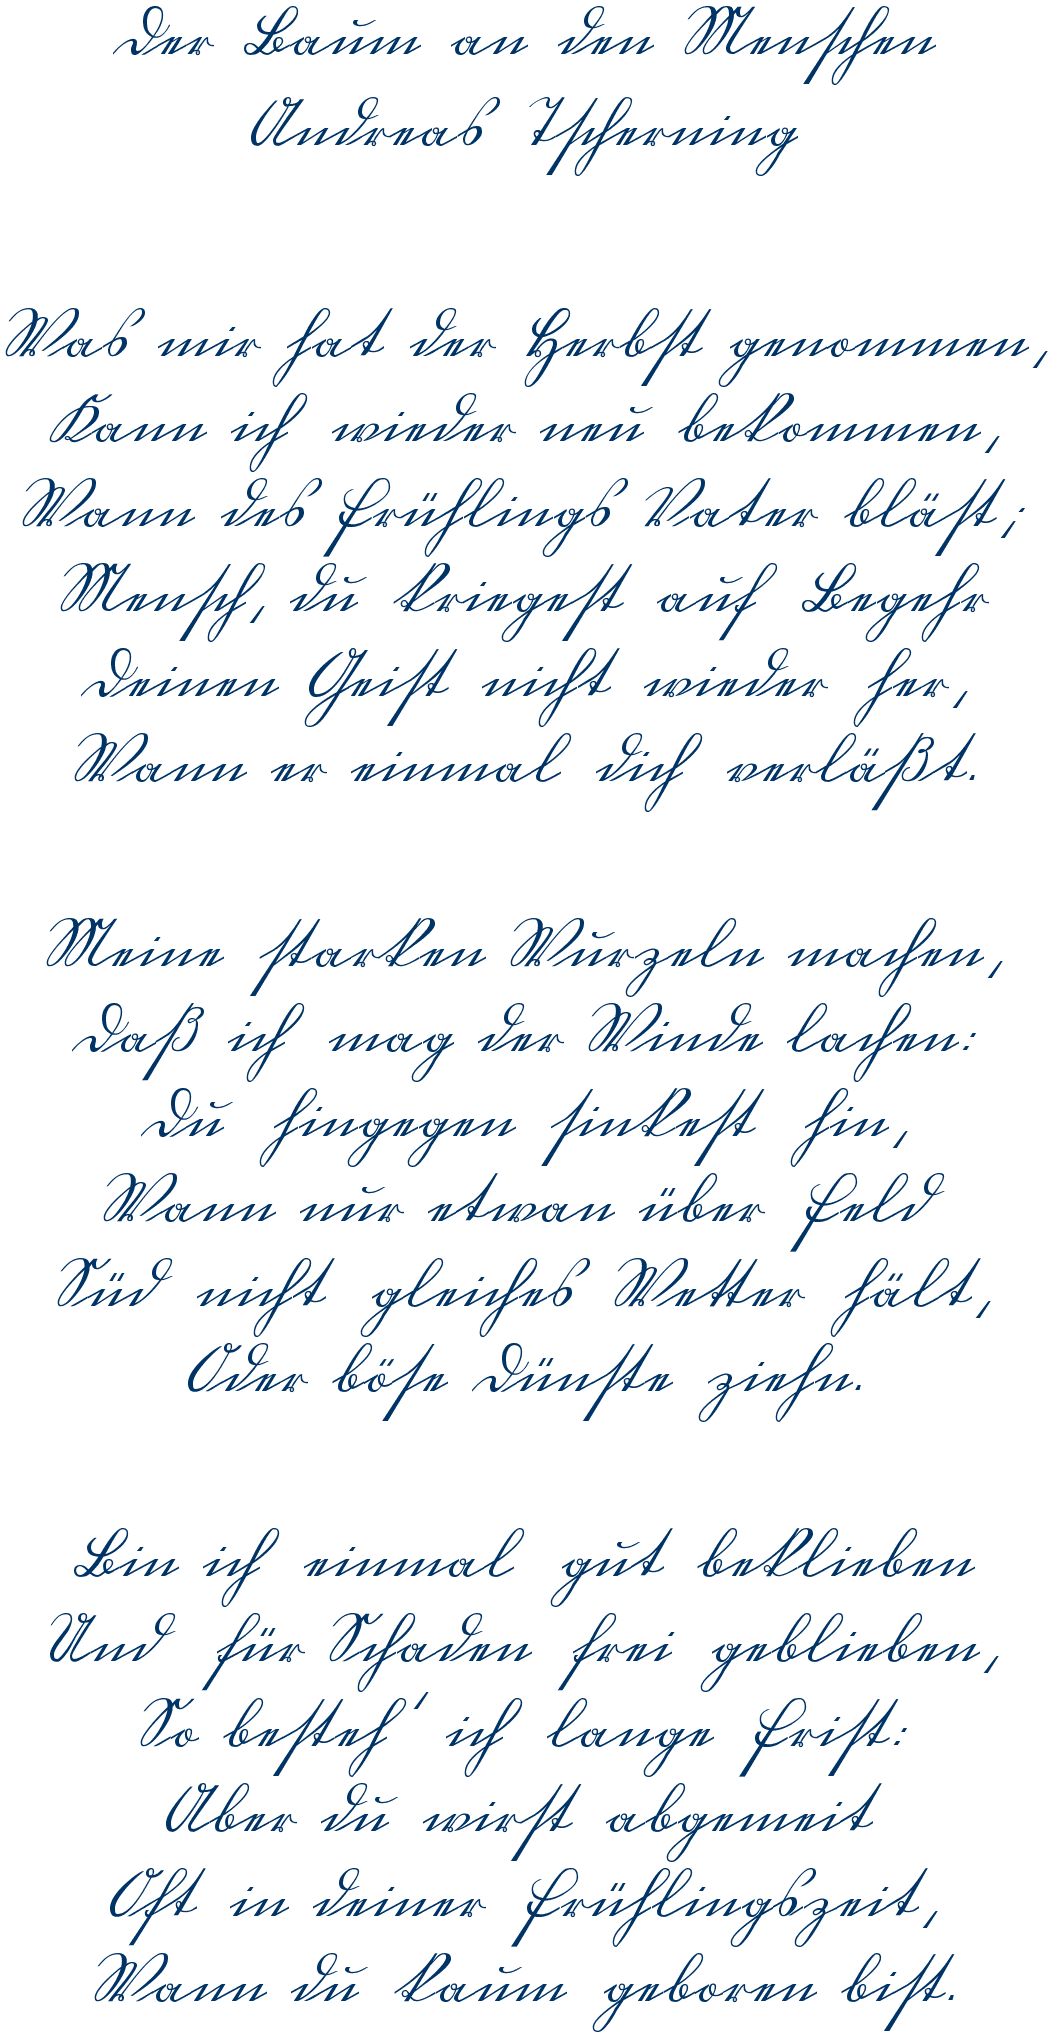 Der Baum an den Menschen
Andreas Tscherning
Was mir hat der Herbst genommen,
Kann ich wieder neu bekommen,
Wann des Frühlings Vater bläst;
Mensch, du kriegest auf Begehr
Deinen Geist nicht wieder her,
Wann er einmal dich verläßt.
Meine starken Wurzeln machen,
Daß ich mag der Winde lachen:
Du hingegen sinkest hin,
Wann nur etwan über Feld
Süd nicht gleiches Wetter hält,
Oder böse Dünste ziehn.
Bin ich einmal gut beklieben
Und für Schaden frei geblieben,
So besteh' ich lange Frist:
Aber du wirst abgemeit
Oft in deiner Frühlingszeit,
Wann du kaum geboren bist.